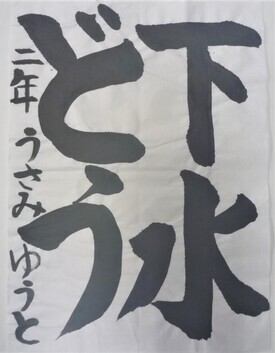 下水
どう
二年 うさみ ゆうと